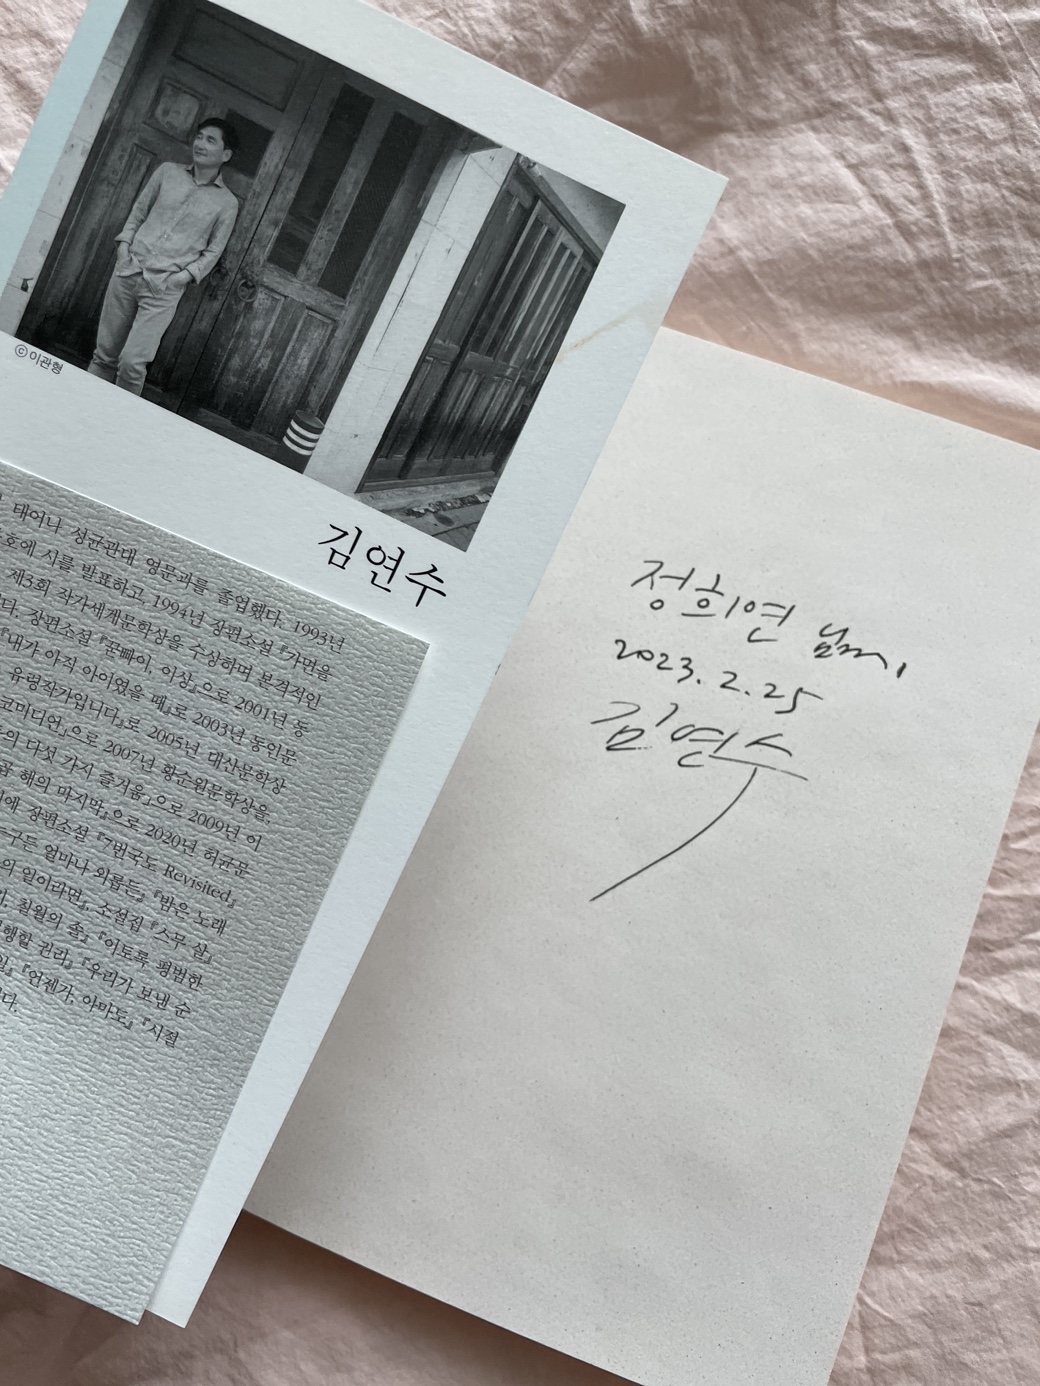 ⓒ이관형
김연수
태어나 성균관대 영문과를 졸업했다. 1993년
호에 시를 발표하고 1994년 장편소설 『가면을
제3회 작가세계문학상을 수상하며 본격적인
다. 장편소설 『꾿빠이, 이상』으로 2001년 동
『내가 아직 아이였을 때』로 2003년 동인문
유령작가입니다』로 2005년 대산문학상
코미디언」으로 2007년 황순원문학상을,
의 다섯 가지 즐거움」으로 2009년 이
해의 마지막』으로 2020년 허균문
에 장편소설 『7번국도 Revisited』
구든 얼마나 외롭든』 『밤은 노래
의 일이라면』, 소설집 『스무 살』
, 칠월의 솔』 『이토록 평범한
행할 권리』 『우리가 보낸 순
』 『언젠가, 아마도』 『시절
다.
정희연 님께,
2023. 2. 25
김연수